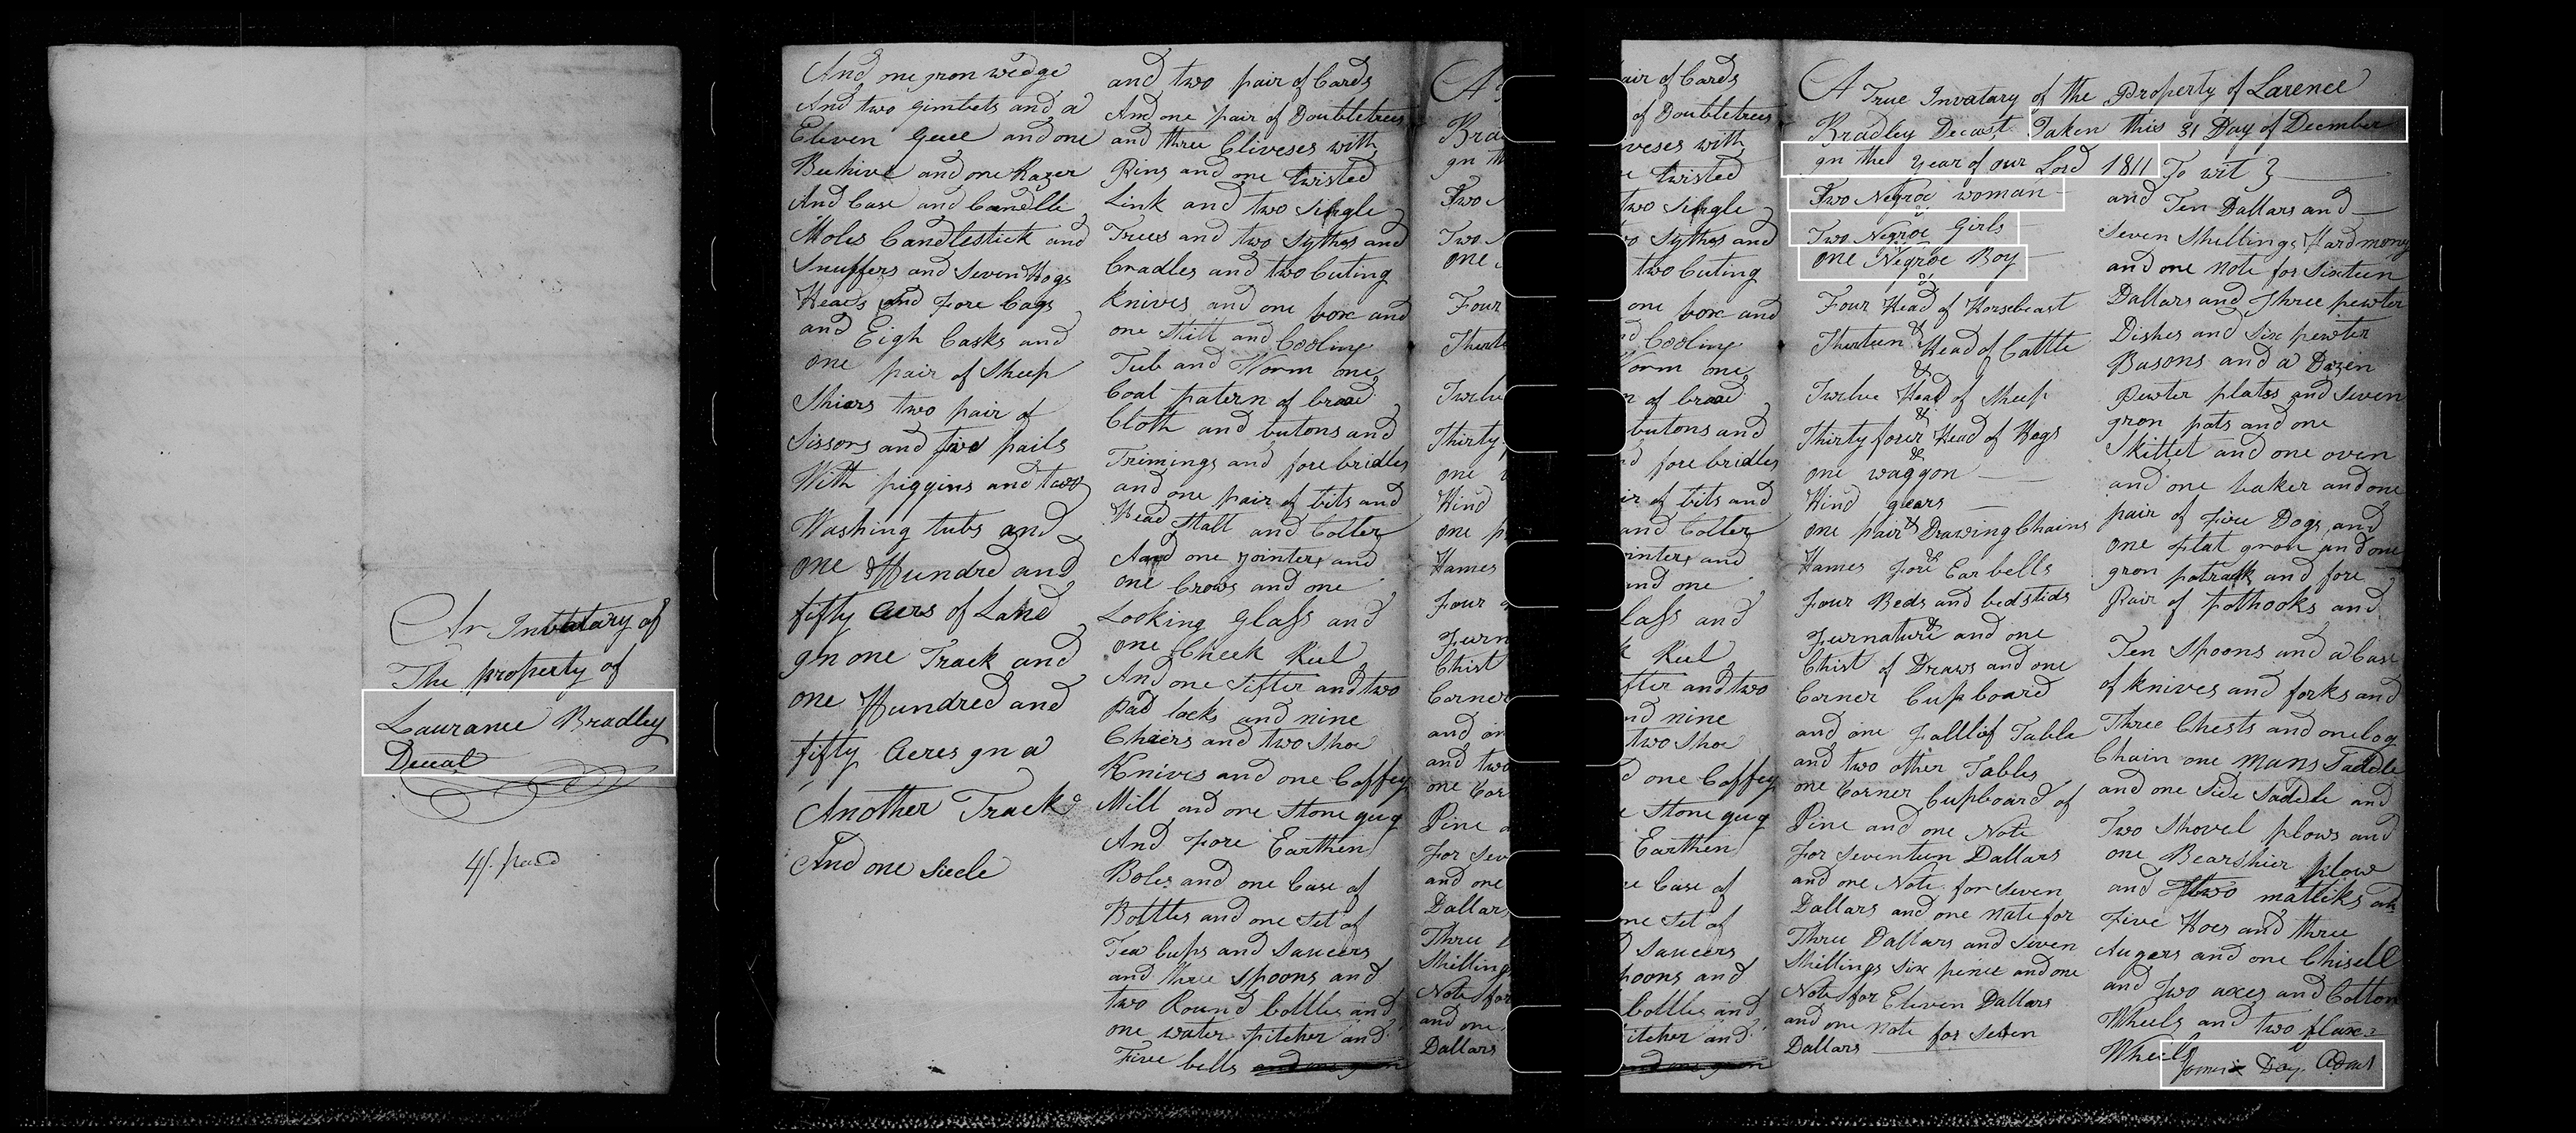 An Invatary of
The property of
Laurance Bradley
Deceat
4/ paid
And one gron wedge
And two gimbets and a
Eleven geee and one
Beehive and one Razer
And Case and Candle
Moles Candlestick and
Snuffers and Seven Hogs
Heads and fore Cags
and Eigh Casks and
one pair of Sheep
Shears two pair of
Sissors and five pails
With piggins and two
Washing tubs and
one Hundred and
fifty acers of Land
gn one Track and
one Hundred and
fifty acres gn a
Another Track
And one Sicele
and two pair of Cards
And one pair of Doubletrees
and three Cliveses with
Rins and one twisted
Link and two Single
Trees and two Sythes and
Cradles and two Cuting
Knives and one box and
one Still and Cooling
Tub and Worm one
Coat patern of broad
Cloth and butons and
Trimings and fore bridles
and one pair of bits and
Head Stall and Coller
And one jointer and
one Crows and one
Looking glass and
one Check Reel
And one Sifter and two
pad locks and nine
Chaiers and two Shoe
Knives and one Coffey
Mill and one Stone gug
And fore Earthen
Boles and one Case of
Bottles and one Set of
Tea Cups and Saucers
and three Spoons and
two Round bottles and
one water pitcher and
Five bells
A
Bra
gn th
Two
Two
one
Four
Thirte
Twelv
Thirty
one
Hind
one p
Hames
Four
Furn
Chist
Corner
and on
and two
one Cor
Pine a
for Sev
and one
Dollars
Three
Shilling
Note for
and one
Dollars
air of Cards
of Doubletrees
veses with
twisted
two Single
o Sythes and
two Cuting
one box and
d Cooling
Worm one
n of broad
butons and
d fore bridles
ir of bits and
and Coller
ointer and
and one
lass and
k Reel
fter and two
nd nine
two Shoe
d one Coffey
e Stone gug
Earthen
e Case of
ne Set of
d Saucers
poons and
bottles and
itcher and
A True Invatary of the Property of Larence
Bradley Deceast Taken this 31 Day of Decmber
gn the year of our Lord 1811 To wit
Two Negroe woman
&
Two Negroe Girls
&
one Negroe Boy
&
Four Head of Horsebeast
&
Thirteen Head of Cattle
&
Twelve Head of Sheep
&
Thirty foser Head of Hogs
&
one waggon
Hind gears
&
one pair Drawing Chains
&
Hames fore Ear bells
Four Beds and bedstids
&
Furnature and one
Chist of Draws and one
Corner Cupboard
and one falllif Table
and two other Tables
one Corner Cupboard of
Pine and one Note
for Seventeen Dollars
and one Note for Seven
Dollars and one Note for
Three Dollars and Seven
Shillings Six pence and one
Note for Eleven Dollars
and one Note for Seven
Dollars
and Ten Dallars and
Seven Shillings Hard mony
and one Note for Sixteen
Dallars and Three pewter
Dishes and Six pewter
Basons and a Dozen
Pewter plates and Seven
gron pots and one
Skillet and one oven
and one baker and one
pair of Fire Dogs and
one flat gron and one
gron potrack and fore
Pair of pothooks and
Ten Spoons and a Case
of knives and forks and
Three Chests and one log
Chain one mans Saddle
and one Side Saddle and
Two Shovel plows and
one Bearshier plow
and two mattiks and
Five Hoes and three
Augers and one Chisell
and Two axes and Cotton
Wheels and two flax
Wheels
Day